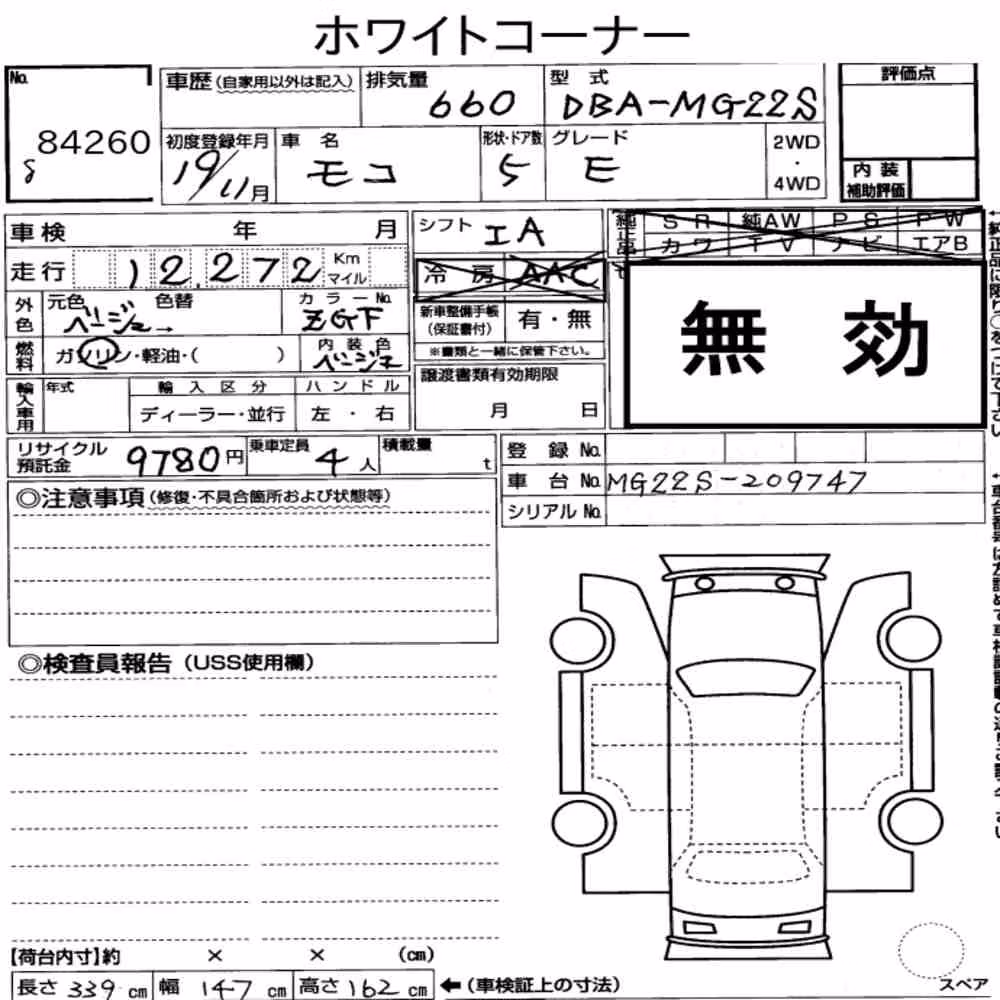 ホワイトコーナー
No.
84260
8
車歴(自家用以外は記入)
排気量
660
型 式
DBA-MG22S
評価点
初度登録年月
19/11月
車 名
モコ
形状・ドア数
5
グレード
E
2WD
・
4WD
内 装
補助評価
車検 年 月
シフト
IA
純正品
SR 純AW PS PW
カワ TV ナビ エアB
走行 112,272 Km マイル
冷 房 AAC
外色
元色 色替
ベージュ→
カラーNo.
ZGF
新車整備手帳
(保証書付)
有・無
※書類と一緒に保管下さい。
無 効
燃料
ガソリン・軽油・( )
内 装 色
ベージュ
輸入車用
年式
輸 入 区 分
ハ ン ド ル
ディーラー・並行
左 ・ 右
譲渡書類有効期限
月 日
リサイクル
預託金
9780円
乗車定員
4人
積載量
t
登 録 No.
車 台 No. MG22S-209747
シリアル No.
◎注意事項(修復・不具合箇所および状態等)
◎検査員報告(USS使用欄)
【荷台内寸】約 × × (cm)
長さ 339 cm 幅 147 cm 高さ 162 cm ←(車検証上の寸法)
スペア